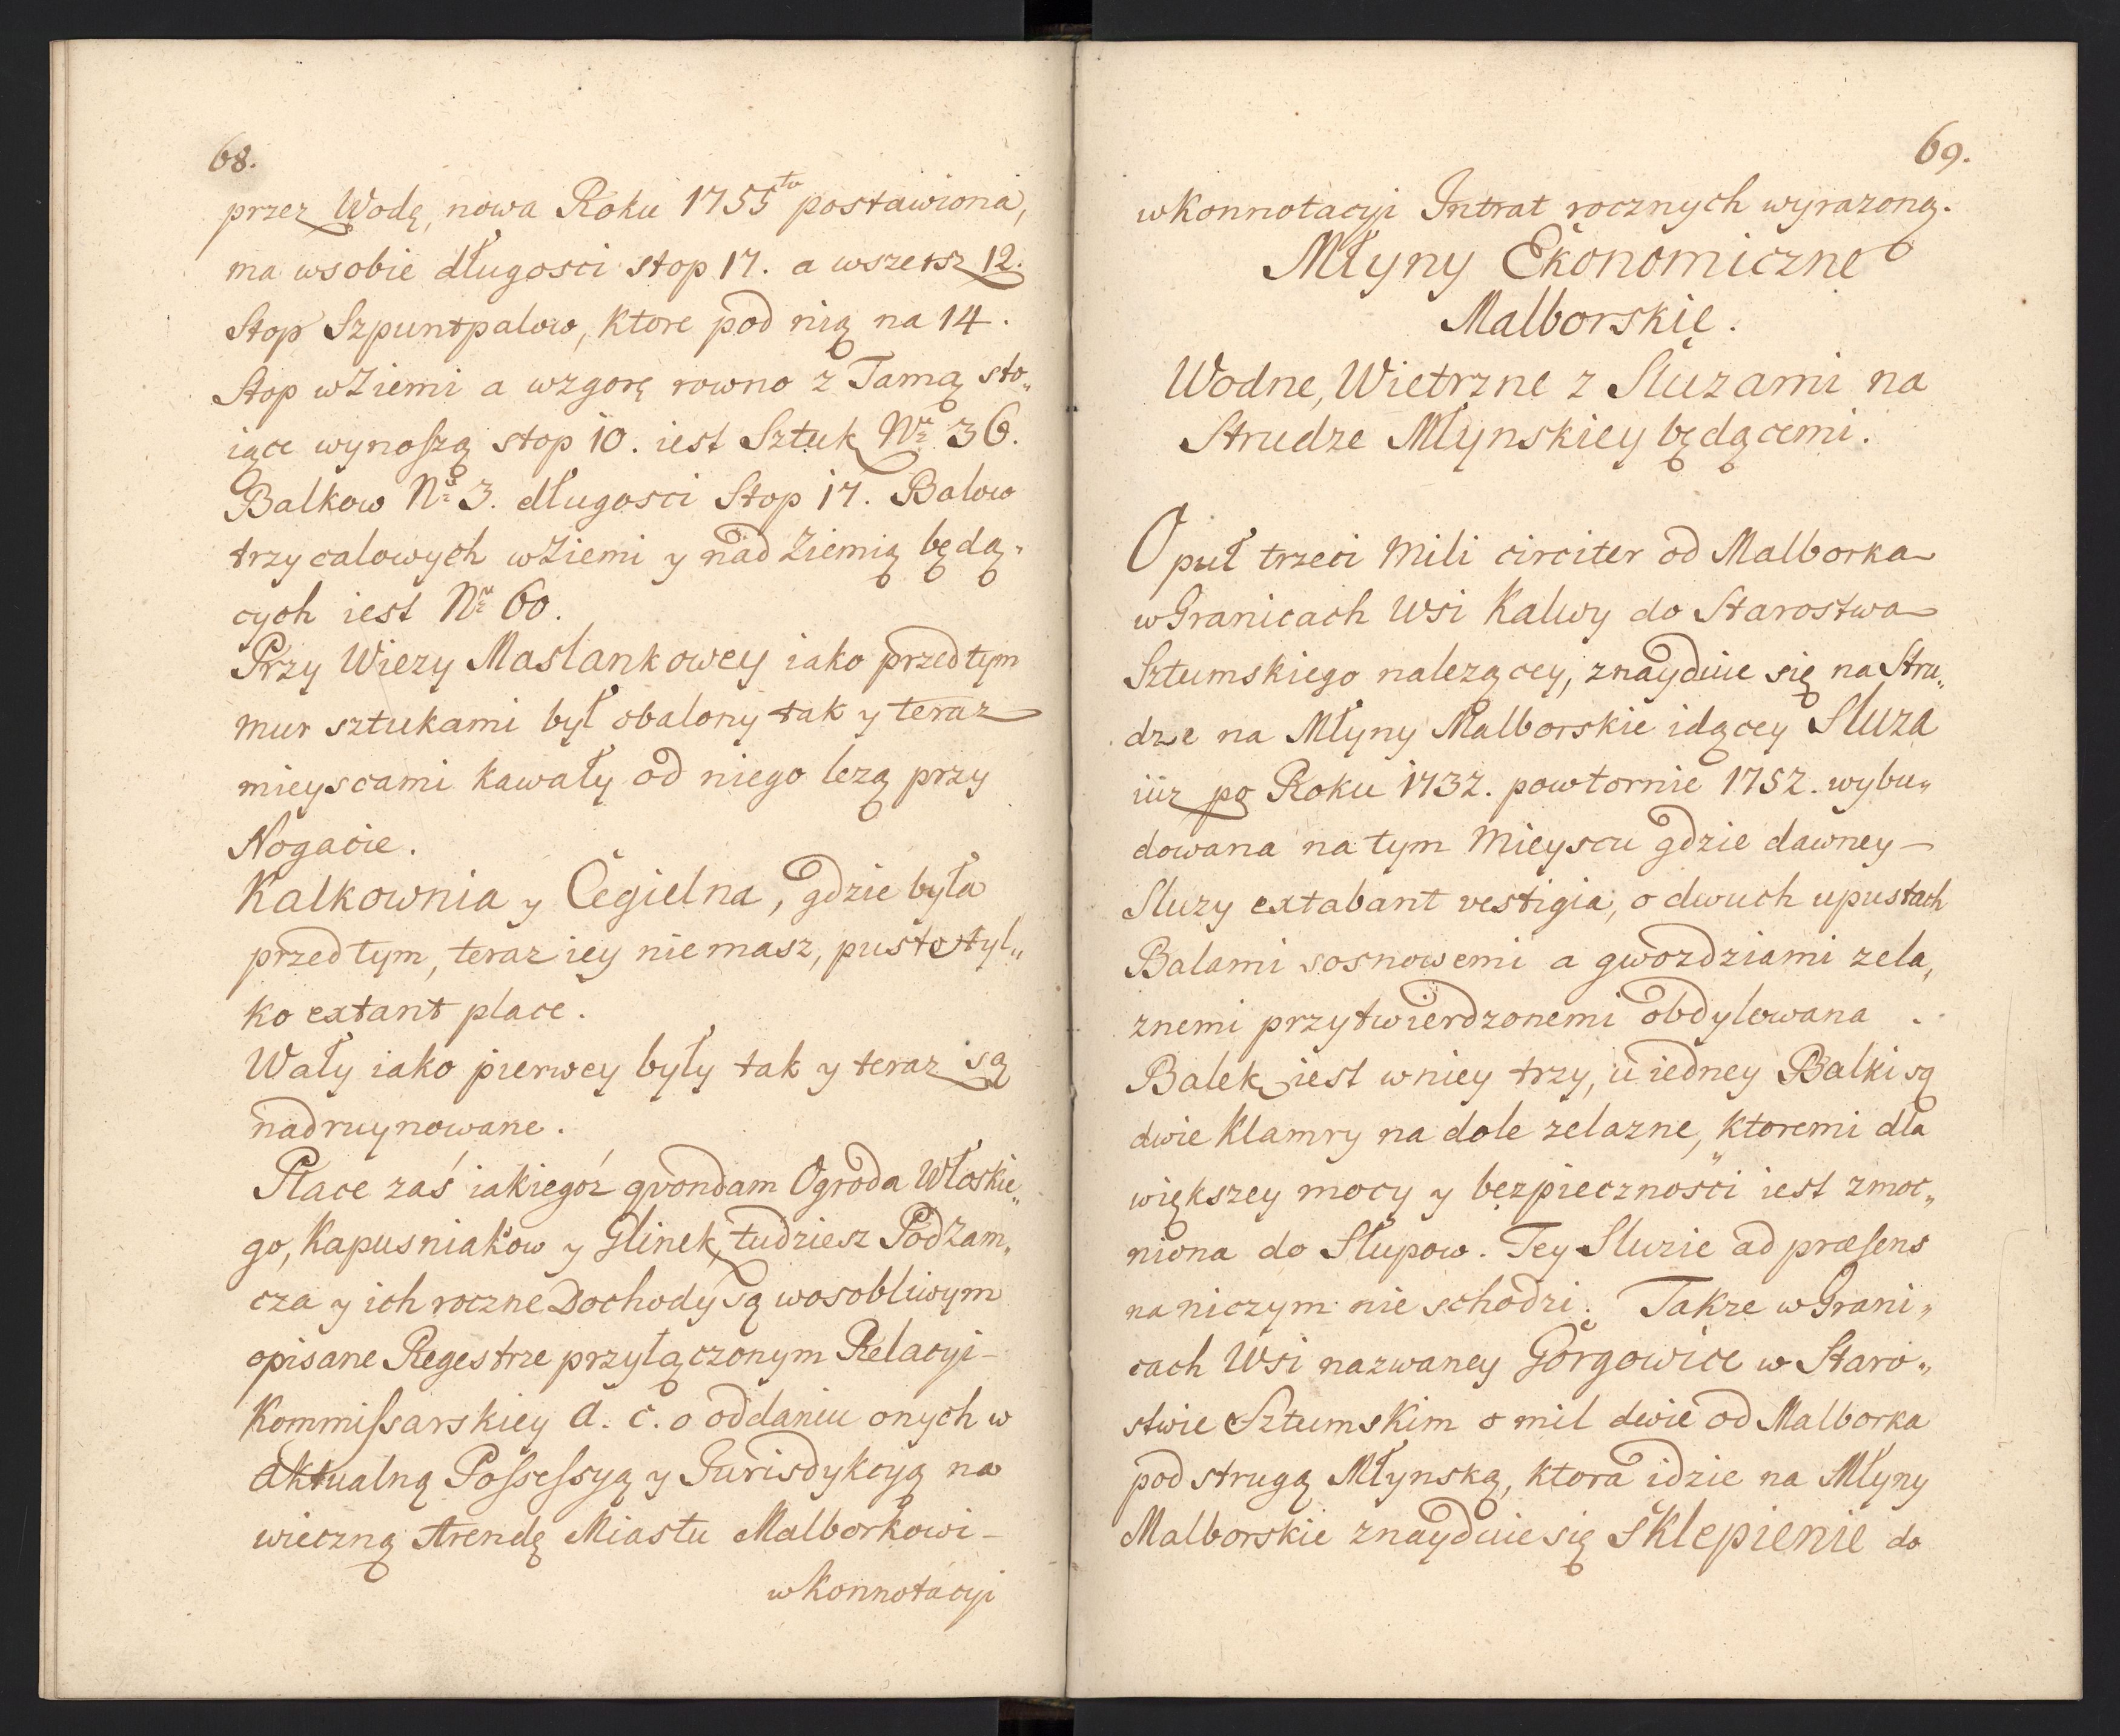 68.
przez Wodę, nowa Roku 1755to postawiona,
ma wsobie długosci stop 17. a wszersz 12.
Stop Szpuntpalow, ktore pod nią na 14.
Stop wZiemi a wzgorę rowno z Tamą sto„
iące wynoszą stop 10. iest Sztuk Nr 36.
Balkow Nr 3. długosci Stop 17. Balow
trzycalowych wZiemi y nad Ziemią będą„
cych iest Nr 60.
Przy Wiezy Maslankowey iako przedtym
mur sztukami był obalony tak y teraz
mieyscami kawały od niego lezą przy
Nogacie.
Kalkownia y Cegielna, gdzie była
przedtym, teraz iey nie masz, puste tyl„
ko extant place.
Wały iako pierwey były tak y teraz są
nadruynowane.
Place zaś iakiegóz qvondam Ogroda Włoskie„
go, Kapusniakow y Glinek, tudziesz Podzam„
cza y ich roczne Dochody są wosobliwym
opisane Regestrze przyłączonym Relacyi
Kommissarskiey A. C. o oddaniu onych w
Aktualną Possessyą y Jurisdykcyą na
wieczną Arendę Miastu Malborkowi
wKonnotacyi
69.
wKonnotacyi Intrat rocznych wyrazoną.
Młyny Ekonomiczne
Malborskie.
Wodne, Wietrzne z Sluzami na
Strudze Młynskiey będącemi.
O puł trzeci Mili circiter od Malborka
wGranicach Wsi Kalwy do Starostwa
Sztumskiego nalezącey, znayduie się na Stru„
dze na Młyny Malborskie idącey Sluza
iüz po Roku 1732. powtornie 1752. wybu„
dowana na tym Mieyscu gdzie dawney
Sluzy extabant vestigia, o dwuch upustach
Balami sosnowemi a gwozdziami zela„
znemi przytwierdzonemi obdylowana.
Balek iest wniey trzy, u iedney Balki są
dwie Klamry na dole zelazne, ktoremi dla
większey mocy y bezpiecznosci iest zmoc„
niona do Słupow. Tey Sluzie ad præsens
na niczym nie schodzi. Takze wGrani„
cach Wsi nazwaney Görgowice w Staro„
stwie Sztumskim o mil dwie od Malborka
pod strugą Młynską, ktora idzie na Młyny
Malborskie znayduie się Sklepienie do